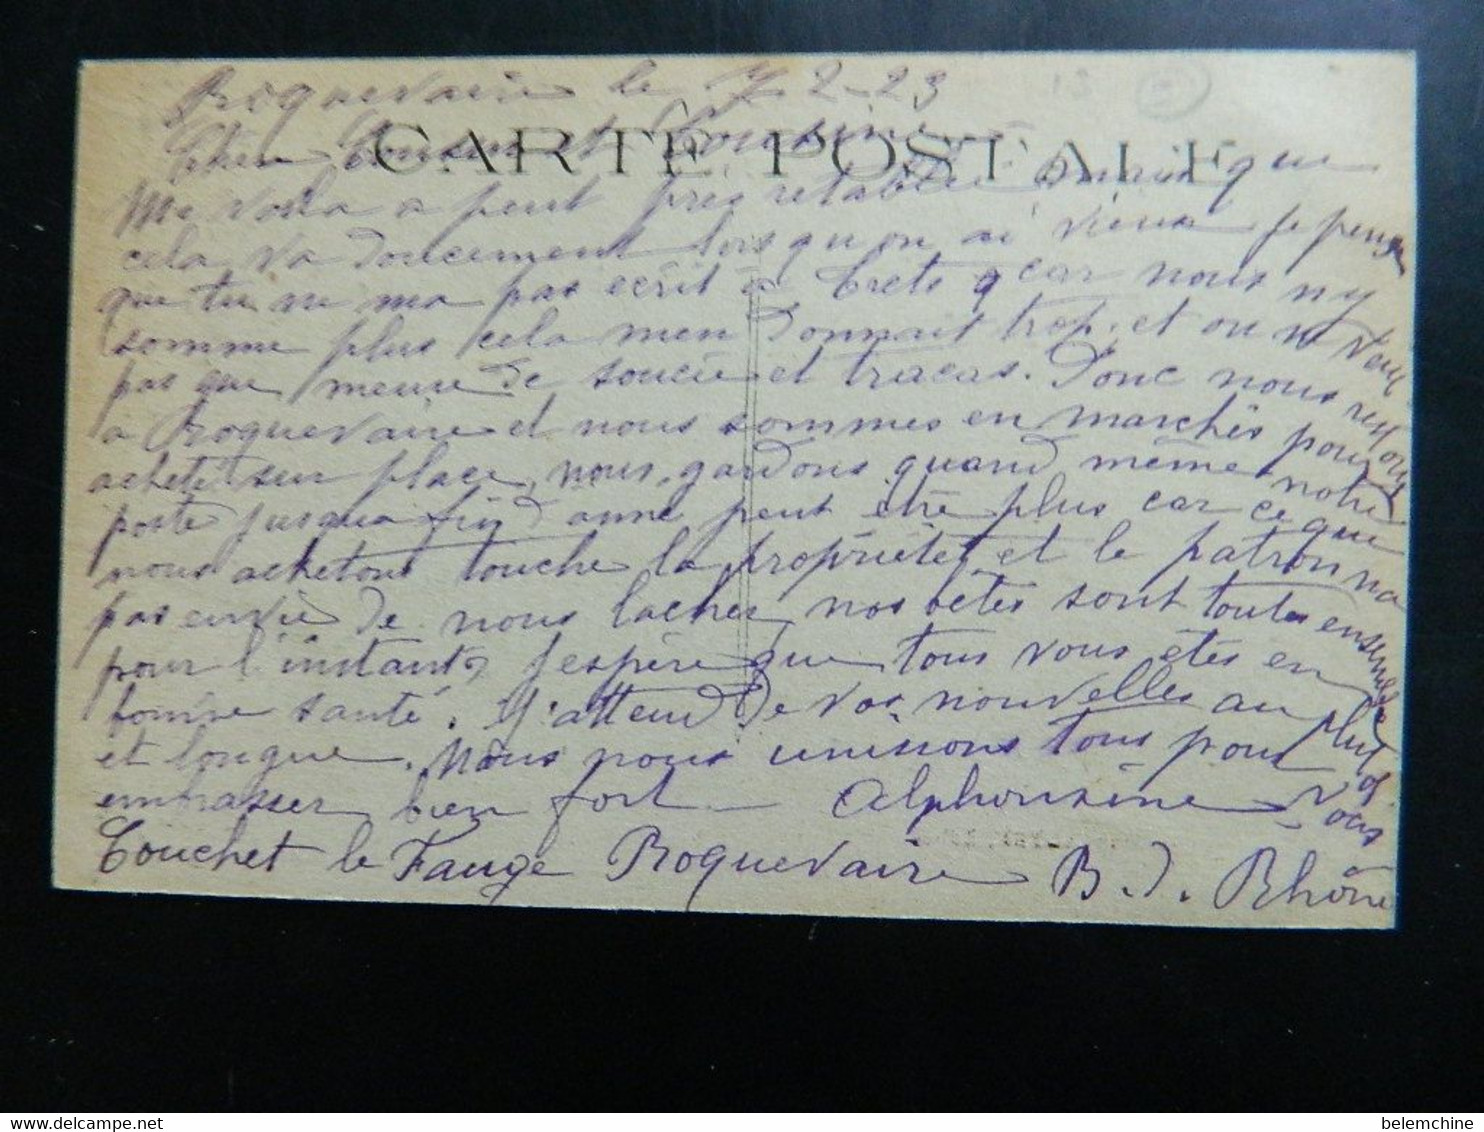 Roquevaire le 7 2-23
CARTE POSTALE
Cher Cousin et Cousine
Me voila a peut pres retablie que
cela va doucement lorsquon ai vieux je pense
que tu ne ma pas ecrit à Trets car nous ny
somme plus cela men donnait trop. et on ne veux
pas que meure de soucie et tracas. Donc nous restons
a Roquevaire et nous sommes en marchés pour
acheté sur place, nous gardons quand même notre
poste jusqua fin d'anné peut etre plus car ce que
nous achetons touche la propriétés et le patron na
pas envie de nous lacher, nos bêtes sont toutes ensembles
pour l'instant, jespère que tous vous êtes en
bonne santé. J'attend de vos nouvelles au plus
et longue. Nous nous unissons tous pour vous
embrasser bien fort - Alphonsine
Couchet le Fauge Roquevaire B. d. Rhône
belemchine